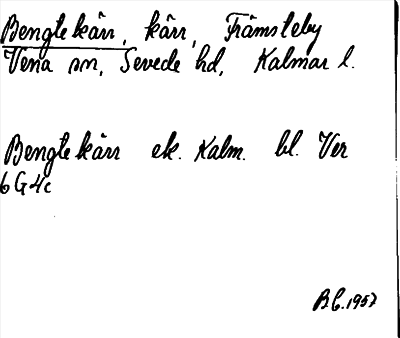 Bengtekärr, kärr, Främsteby
Vena sn, Sevede hd, Kalmar l.
Bengtekärr ek. Kalm. bl. Ver
6G4c
BC.1957